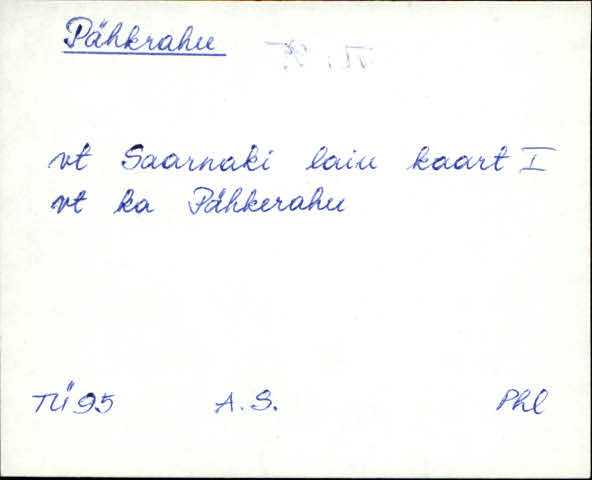 Pähkrahu
vt Saarnaki laiu kaart I
vt ka Pähkerahu
TÜ 95 A. S. Phl